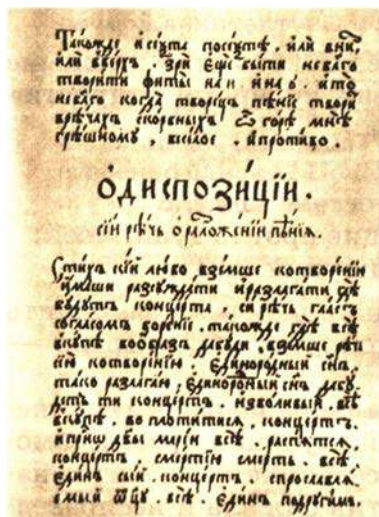 Такожде и посѹетѣ . или вни
или вверхъ . зри еще быти неблго
творити фиты на и и на о . и то
неблго когда творецъ пѣніе твори
в рѣчахъ скорбныхъ ѿ горе мнѣ
грѣшному , веселое . и противо .
О диспозиціи .
сіи рѣчь о разложеніи пѣнія .
Стихъ кій любо вземше ко творенію
имаши разсуждати и разлагати гдѣ
будутъ концерта , си рѣчь гласъ
согласомъ бореніе . такожде гдѣ всѣ
вкупѣ вообразъ да буди . вземше рѣ
сію ко творенію . единородный сне .
тако разлагаю , единородный сне да бу
детъ ти концертъ . изволивый . всѣ
вкупѣ . воплотитися , концертъ .
и двы маріи всѣ . распятся .
концертъ . смертію смерть . всѣ .
единъ сый концертъ . спрославля
емый ѿцу . всѣ . единъ подругимъ .